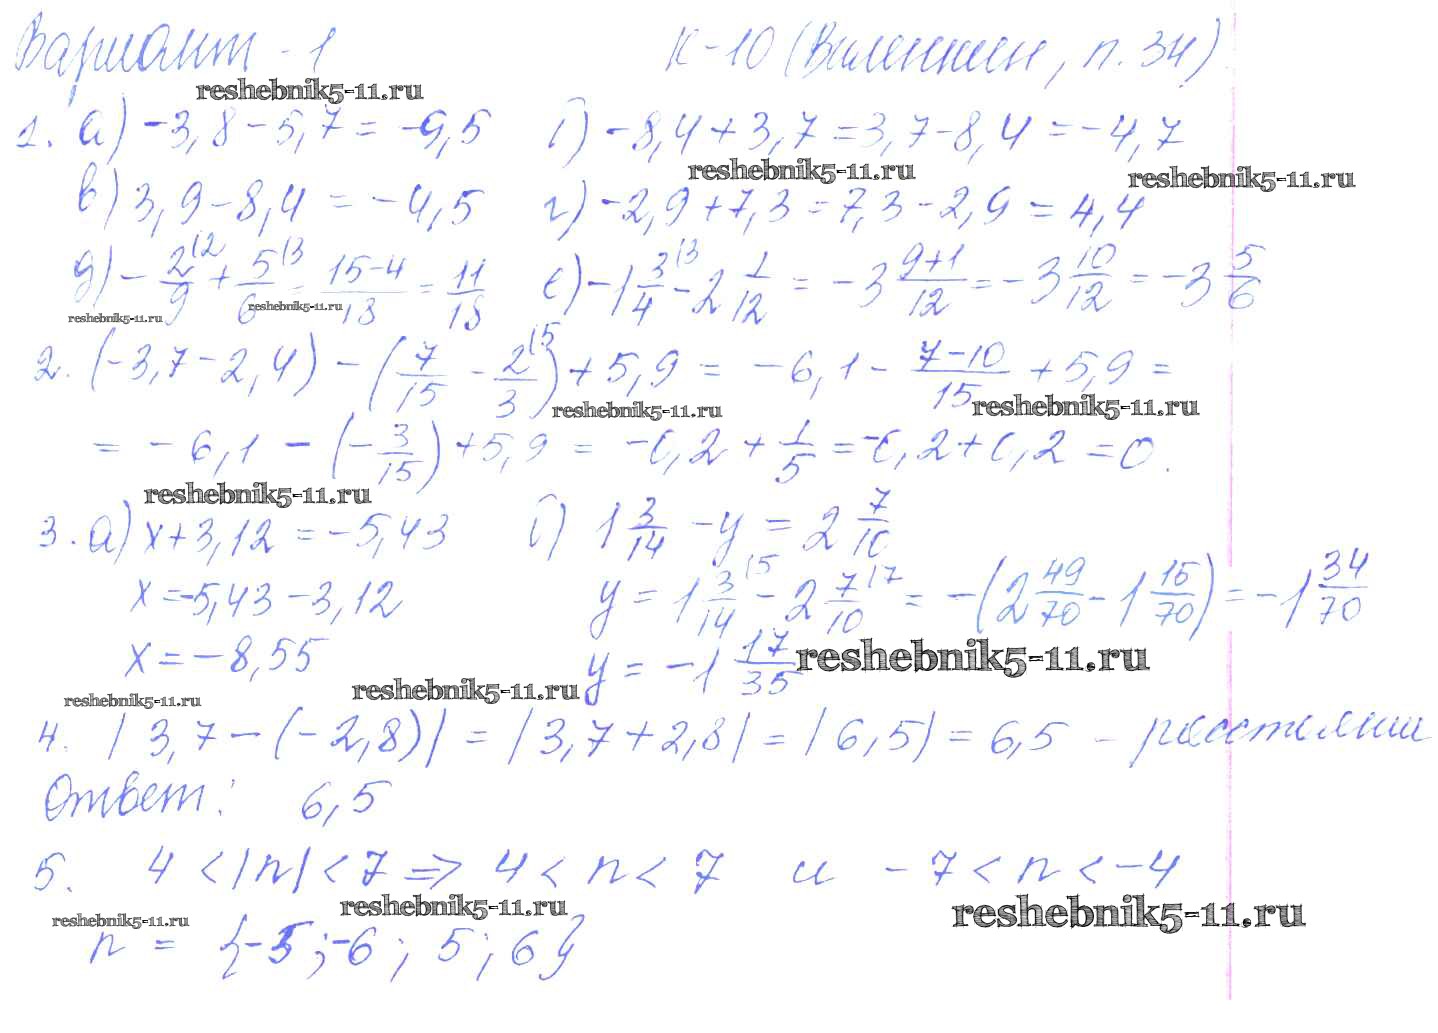 Вариант - 1 К-10 (Виленкин, п. 34)
reshebnik5-11.ru
1. а) -3,8 - 5,7 = -9,5 б) -8,4 + 3,7 = 3,7 - 8,4 = -4,7
reshebnik5-11.ru reshebnik5-11.ru
в) 3,9 - 8,4 = -4,5 г) -2,9 + 7,3 = 7,3 - 2,9 = 4,4
д) - 2/9 (2 + 5/6 (3 = 15-4/18 = 11/18 е) -1 3/4 (3 - 2 1/12 = -3 9+1/12 = -3 10/12 = -3 5/6
reshebnik5-11.ru reshebnik5-11.ru
2. (-3,7 - 2,4) - (7/15 - 2/3 (5) + 5,9 = -6,1 - 7-10/15 + 5,9 =
reshebnik5-11.ru reshebnik5-11.ru
= -6,1 - (- 3/15) + 5,9 = -0,2 + 1/5 = -0,2 + 0,2 = 0.
reshebnik5-11.ru
3. а) x + 3,12 = -5,43 б) 1 3/14 - y = 2 7/10
x = -5,43 - 3,12 y = 1 3/14 (5 - 2 7/10 (7 = -(2 49/70 - 1 15/70) = -1 34/70
x = -8,55 y = -1 17/35 reshebnik5-11.ru
reshebnik5-11.ru reshebnik5-11.ru
4. |3,7 - (-2,8)| = |3,7 + 2,8| = |6,5| = 6,5 -
Ответ: 6,5
5. 4 < |n| < 7 => 4 < n < 7 и -7 < n < -4
reshebnik5-11.ru reshebnik5-11.ru reshebnik5-11.ru
n = {-5; -6; 5; 6}